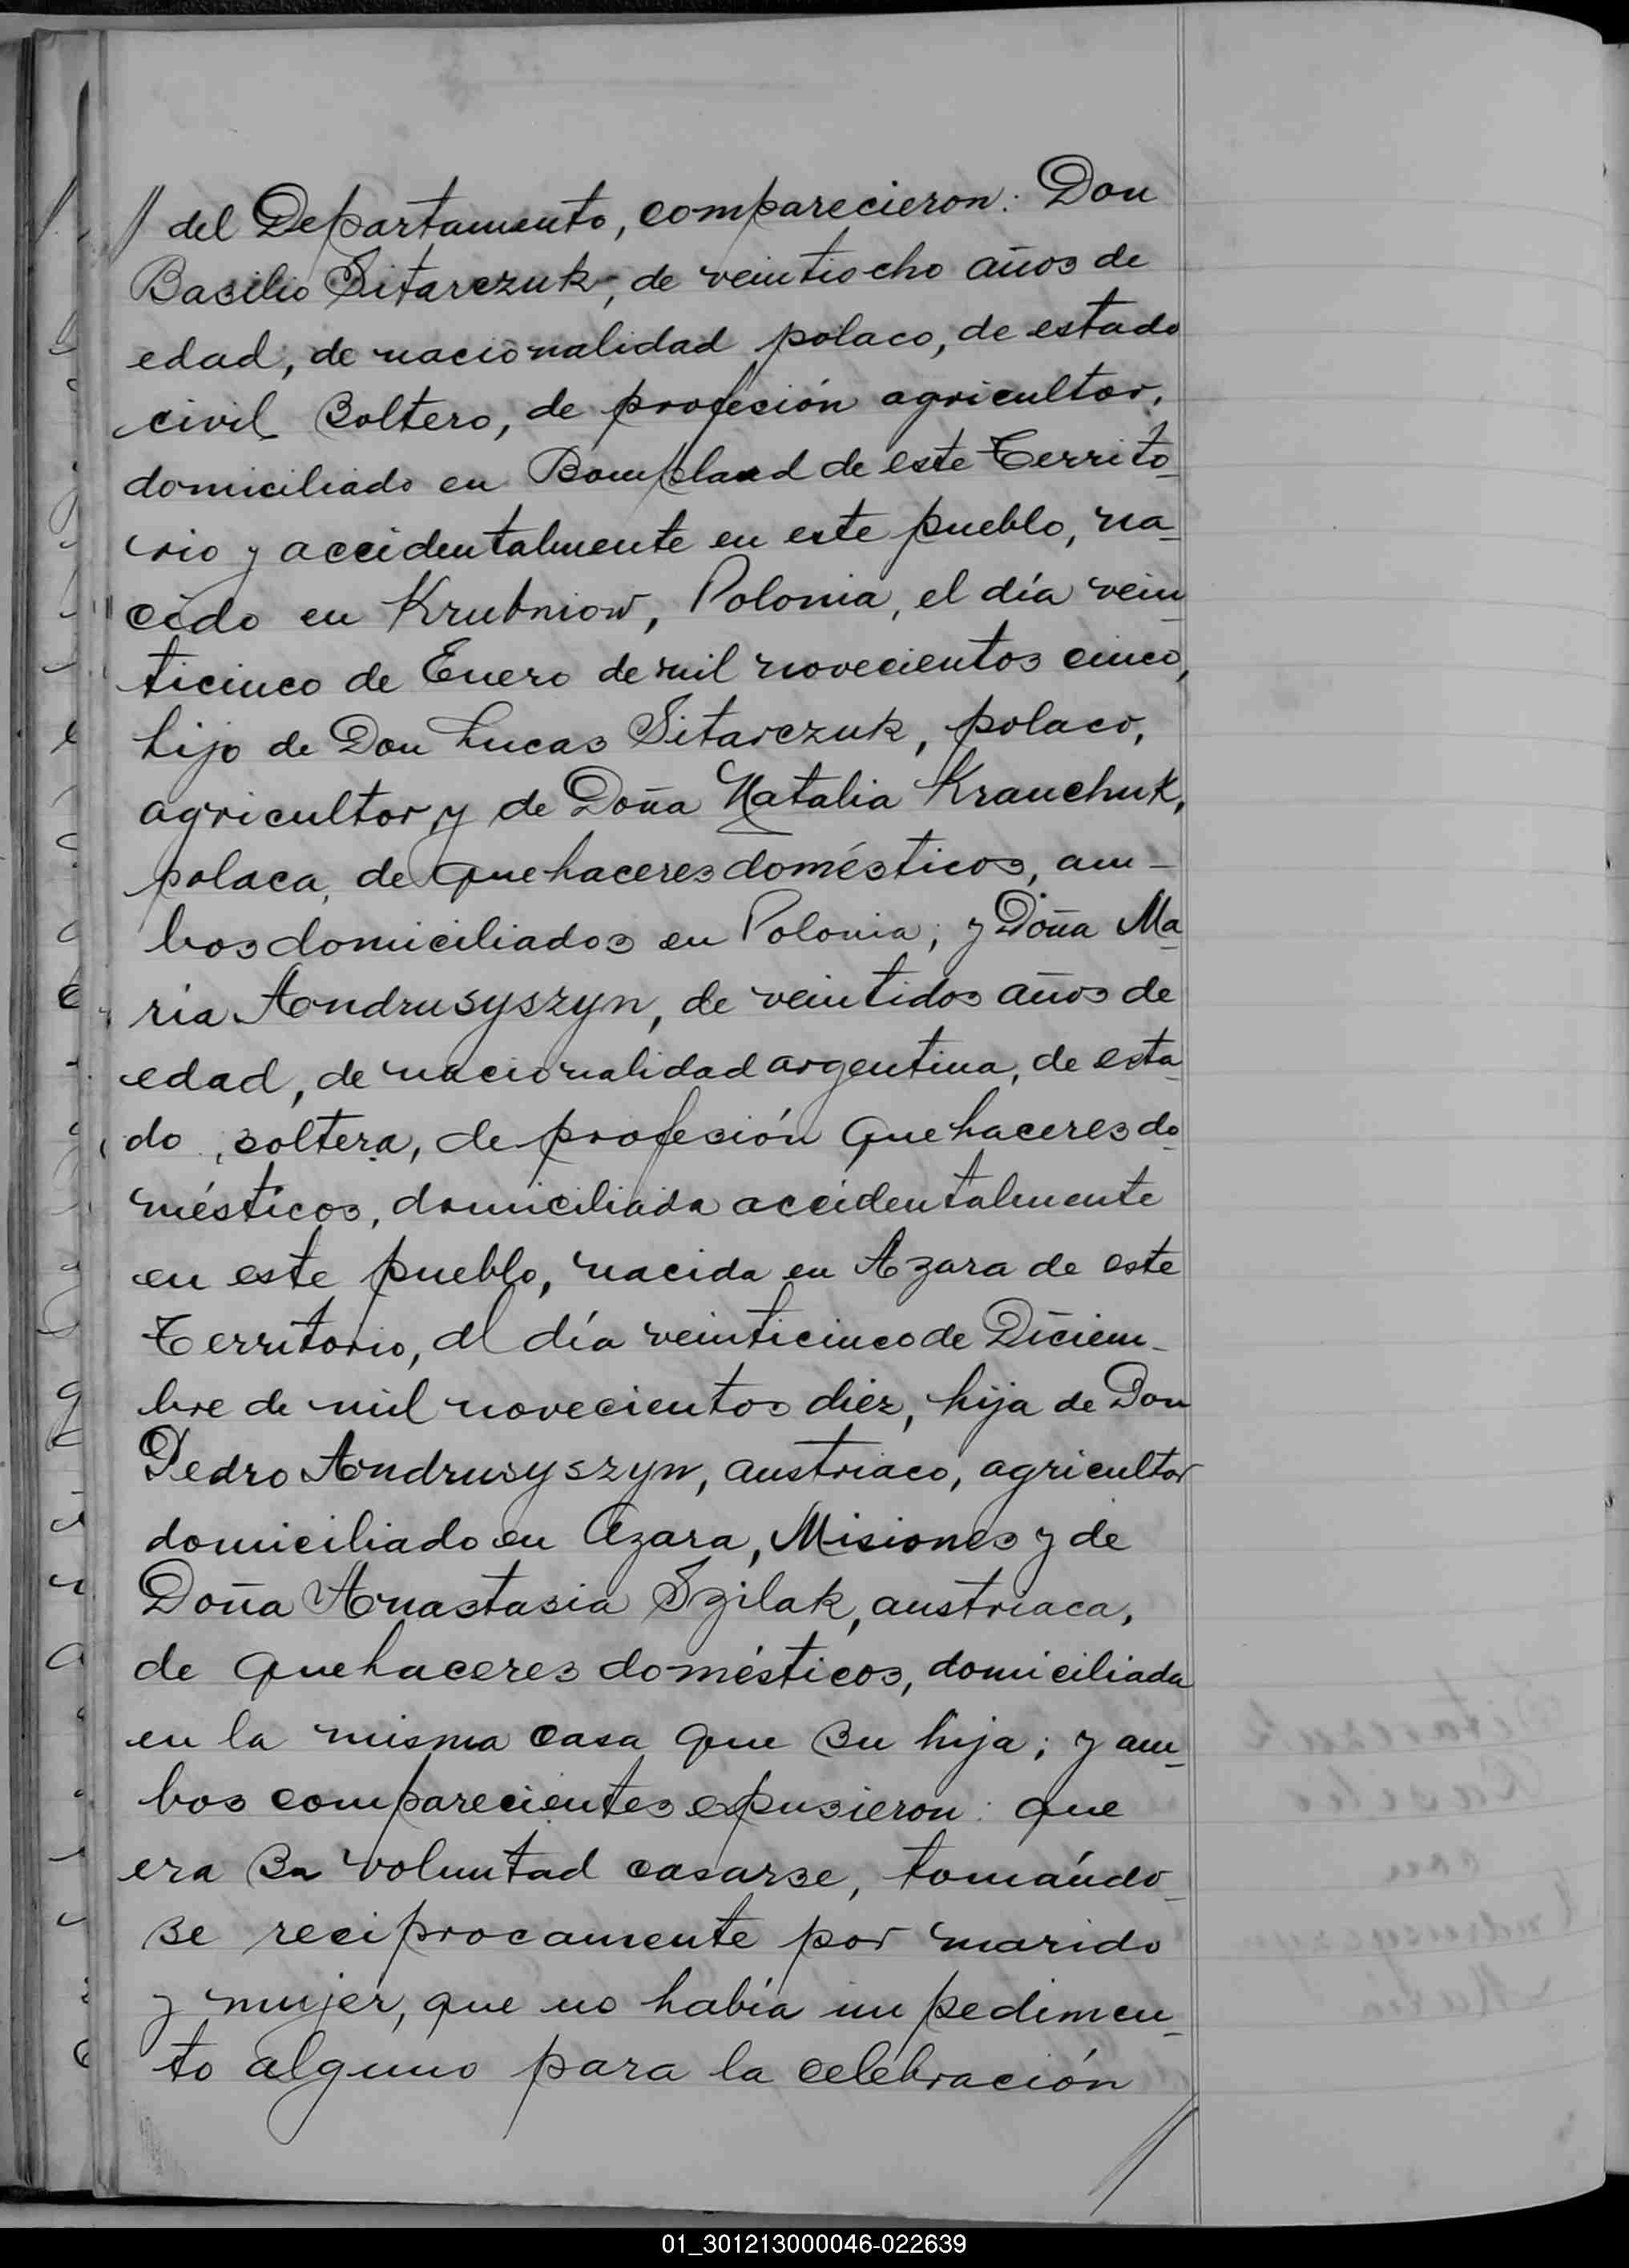 // del Departamento, comparecieron: Don
Basilio Sitarczuk, de veintiocho años de
edad, de nacionalidad polaco, de estado
civil soltero, de profesión agricultor,
domiciliado en Bompland de este Territo-
rio y accidentalmente en este pueblo, na-
cido en Krubniow, Polonia, el día vein-
ticinco de Enero de mil novecientos cinco,
hijo de Don Lucas Sitarczuk, polaco,
agricultor y de Doña Natalia Krauchuk,
polaca, de quehaceres domésticos, am-
bos domiciliados en Polonia; y Doña Ma-
ria Andrusyszyn, de veintidos años de
edad, de nacionalidad argentina, de esta-
do soltera, de profesión quehaceres do-
mésticos, domiciliada accidentalmente
en este pueblo, nacida en Azara de este
Territorio, el día veinticinco de Diciem-
bre de mil novecientos diez, hija de Don
Pedro Andrusyszyn, austriaco, agricultor
domiciliado en Azara, Misiones y de
Doña Anastasia Szilak, austriaca,
de quehaceres domésticos, domiciliada
en la misma casa que su hija; y am-
bos comparecientes expusieron: que
era su voluntad casarse, tomándo-
se reciprocamente por marido
y mujer, que no había impedimen-
to alguno para la celebración
//
01_301213000046-022639